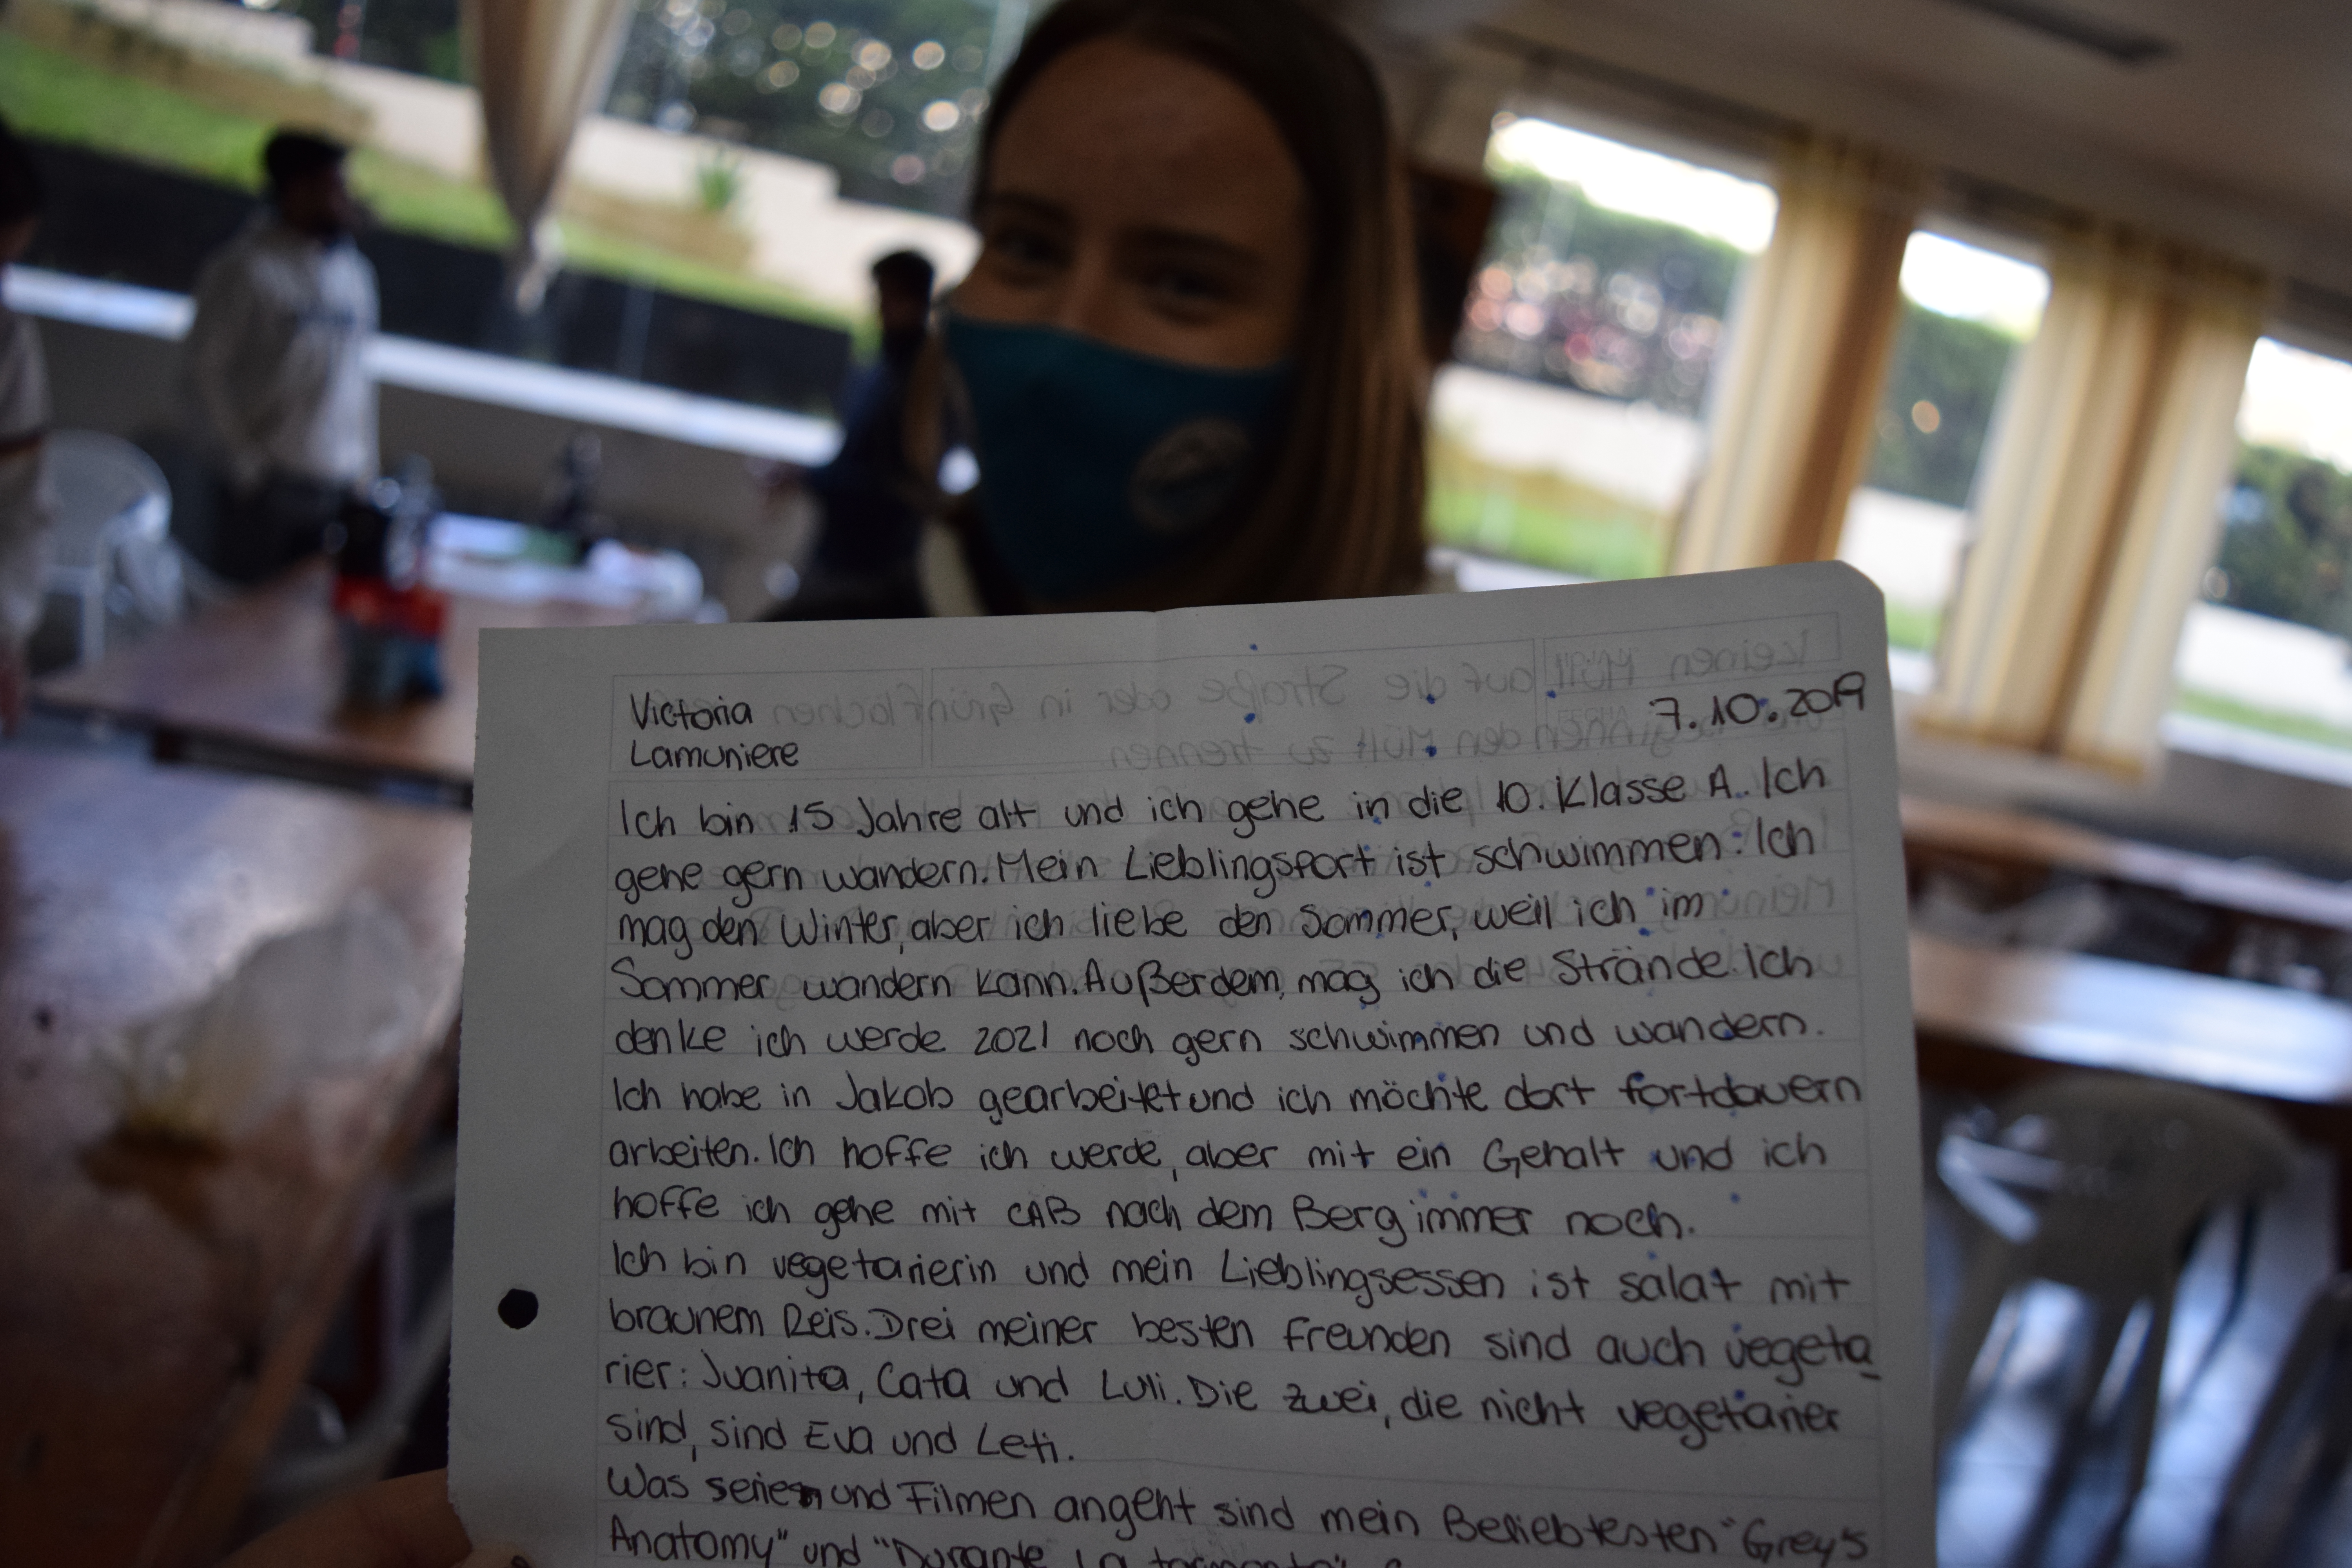 Victoria
Lamuniere
7.10.2019
Ich bin 15 Jahre alt und ich gehe in die 10. Klasse A. Ich
gehe gern wandern. Mein Lieblingsport ist schwimmen. Ich
mag den Winter, aber ich liebe den Sommer, weil ich im
Sommer wandern kann. Außerdem, mag ich die Strände. Ich
denke ich werde 2021 noch gern schwimmen und wandern.
Ich habe in Jakob gearbeitet und ich möchte dort fortdauern
arbeiten. Ich hoffe ich werde, aber mit ein Gehalt und ich
hoffe ich gehe mit CAB nach dem Berg immer noch.
Ich bin vegetarierin und mein Lieblingsessen ist salat mit
braunem Reis. Drei meiner besten freunden sind auch vegeta
rier: Juanita, Cata und Luli. Die zwei, die nicht vegetarier
sind, sind Eva und Leti.
Was serien und Filmen angeht sind mein Beliebtesten "Grey's
Anatomy" und "Durante la tormenta"